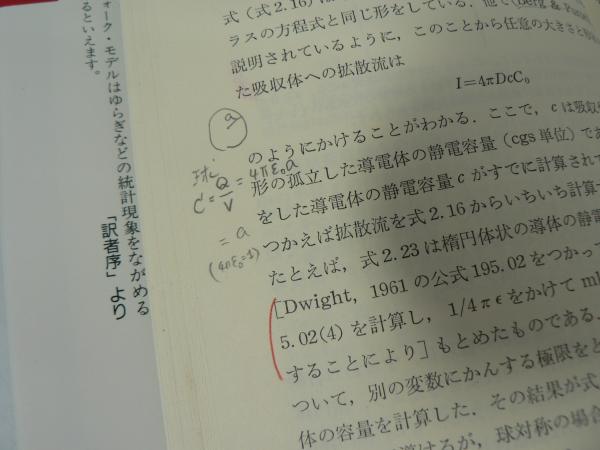 ォーク・モデルはゆらぎなどの統計現象をながめる
るといえます。
「訳者序」より
式(式2.16)
ラスの方程式と同じ形をしている.他で(Berg & Purc
説明されているように,このことから任意の大きさと形
た吸収体への拡散流は
I=4πDcC₀
のようにかけることがわかる.ここで,cは吸収
形の孤立した導電体の静電容量(cgs単位)であ
をした導電体の静電容量cがすでに計算されて
つかえば拡散流を式2.16からいちいち計算
たとえば,式2.23は楕円体状の導体の静電
[Dwight, 1961の公式195.02をつかって
5.02(4)を計算し,1/4πϵをかけてmk
することにより]もとめたものである.
ついて,別の変数にかんする極限をと
体の容量を計算した.その結果が式
導けるが,球対称の場合
a
球
C = Q/V = 4πε₀a
= a
(4πε₀=1)